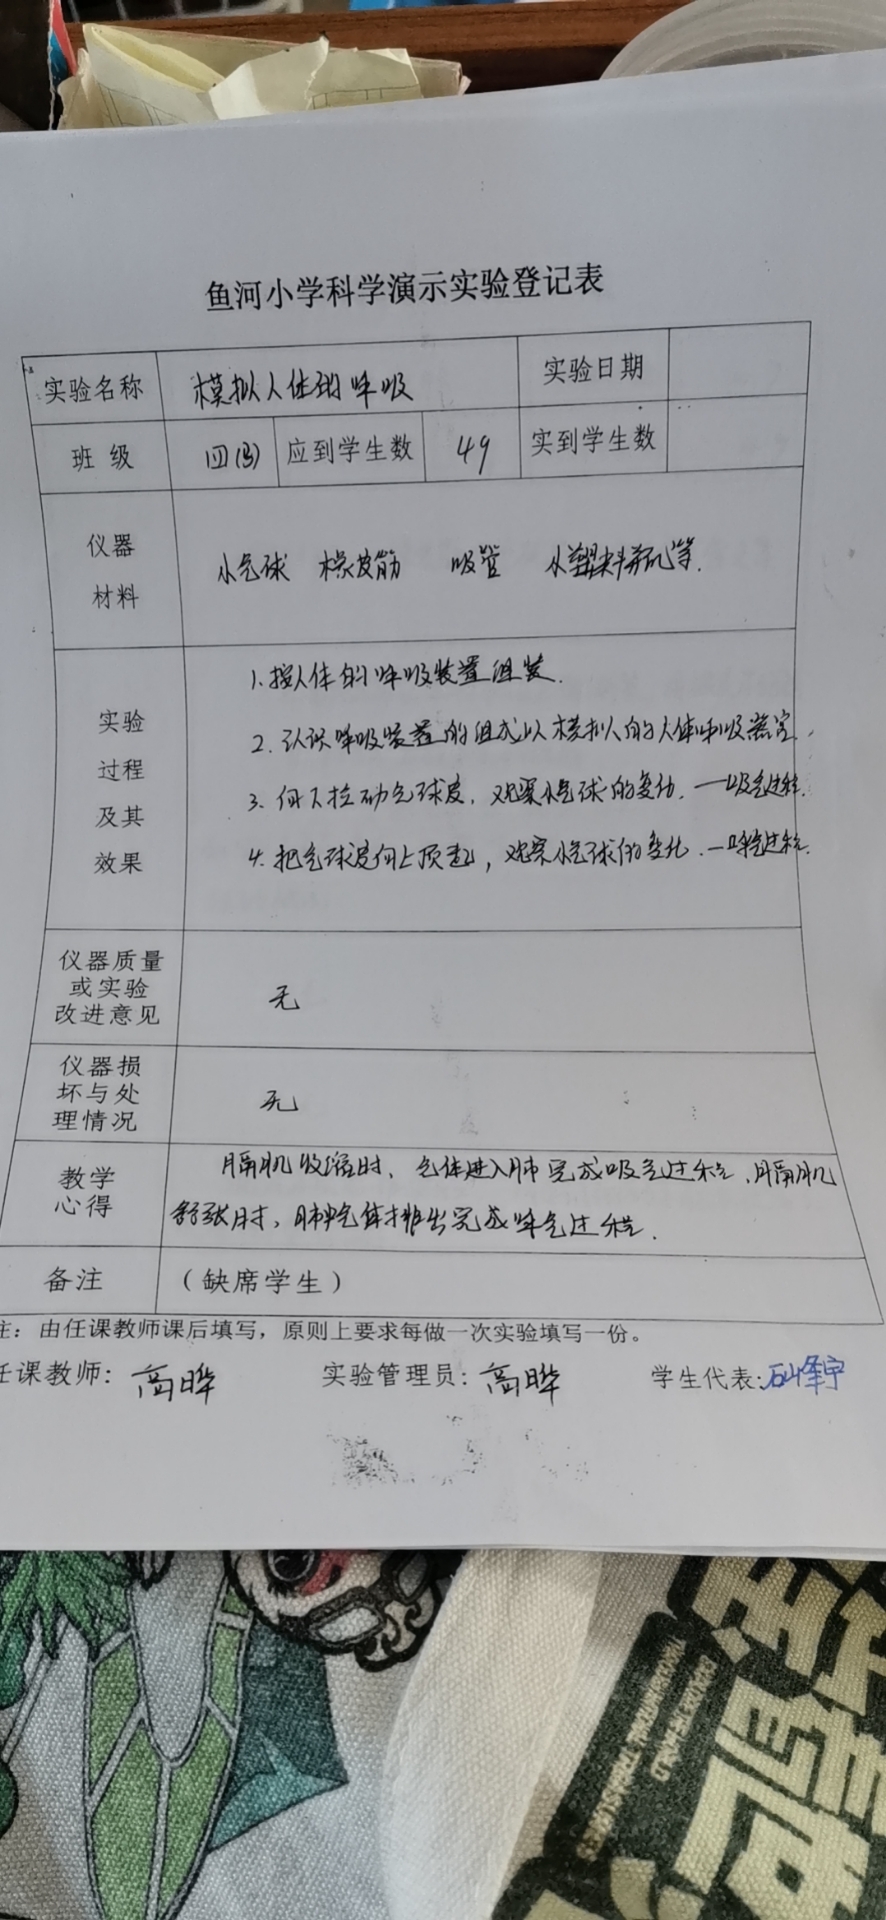 鱼河小学科学演示实验登记表
实验名称 模拟人体的呼吸 实验日期
班 级 四(3) 应到学生数 49 实到学生数
仪器
材料
小气球 橡皮筋 吸管 小塑料瓶等.
实验
过程
及其
效果
1.按人体的呼吸装置组装.
2.认识呼吸装置的组成以模拟人的人体呼吸器官.
3.向下拉动气球皮,观察小气球的变化.一吸气过程.
4.把气球皮向上顶起,观察小气球的变化.一呼气过程.
仪器质量
或实验
改进意见
无
仪器损
坏与处
理情况
无
教学
心得
膈肌收缩时、气体进入肺完成吸气过程、膈肌
舒张时,肺气体排出完成呼气过程.
备注 (缺席学生)
注:由任课教师课后填写,原则上要求每做一次实验填写一份。
任课教师:高晔 实验管理员:高晔 学生代表: